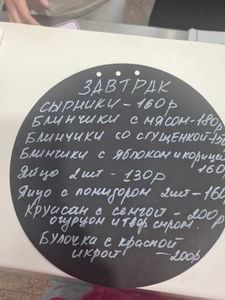 ЗАВТРАК
СЫРНИКИ - 160р
БЛИНЧИКИ С МЯСОМ - 180р
БЛИНЧИКИ СО СГУЩЕНКОЙ -
БЛИНЧИКИ С ЯБЛОКОМ И КОРИЦЕЙ
160р
ЯЙЦО 2 шт - 130р
ЯЙЦО С ПОМИДОРОМ 2 шт - 160
КРУАССАН С СЕМГОЙ - 200р
ОГУРЦОМ И ТВОР. СЫРОМ.
БУЛОЧКА С КРАСНОЙ
ИКРОЙ - 200р